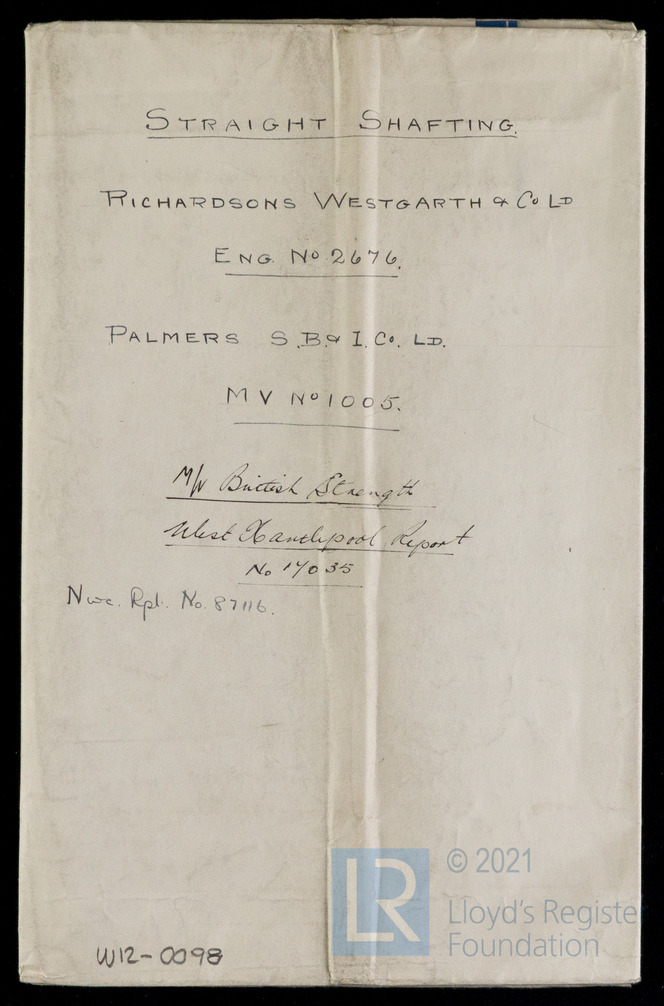 STRAIGHT SHAFTING.
RICHARDSONS WESTGARTH & Co LD
ENG. No 2676.
PALMERS S.B. & I. Co. LD.
M V No 1005.
M/V British Strength
West Hartlepool Report
No 17035
Nwc. Rpt. No. 87116.
LR
© 2021
Lloyd's Registe
Foundation
W12-0098